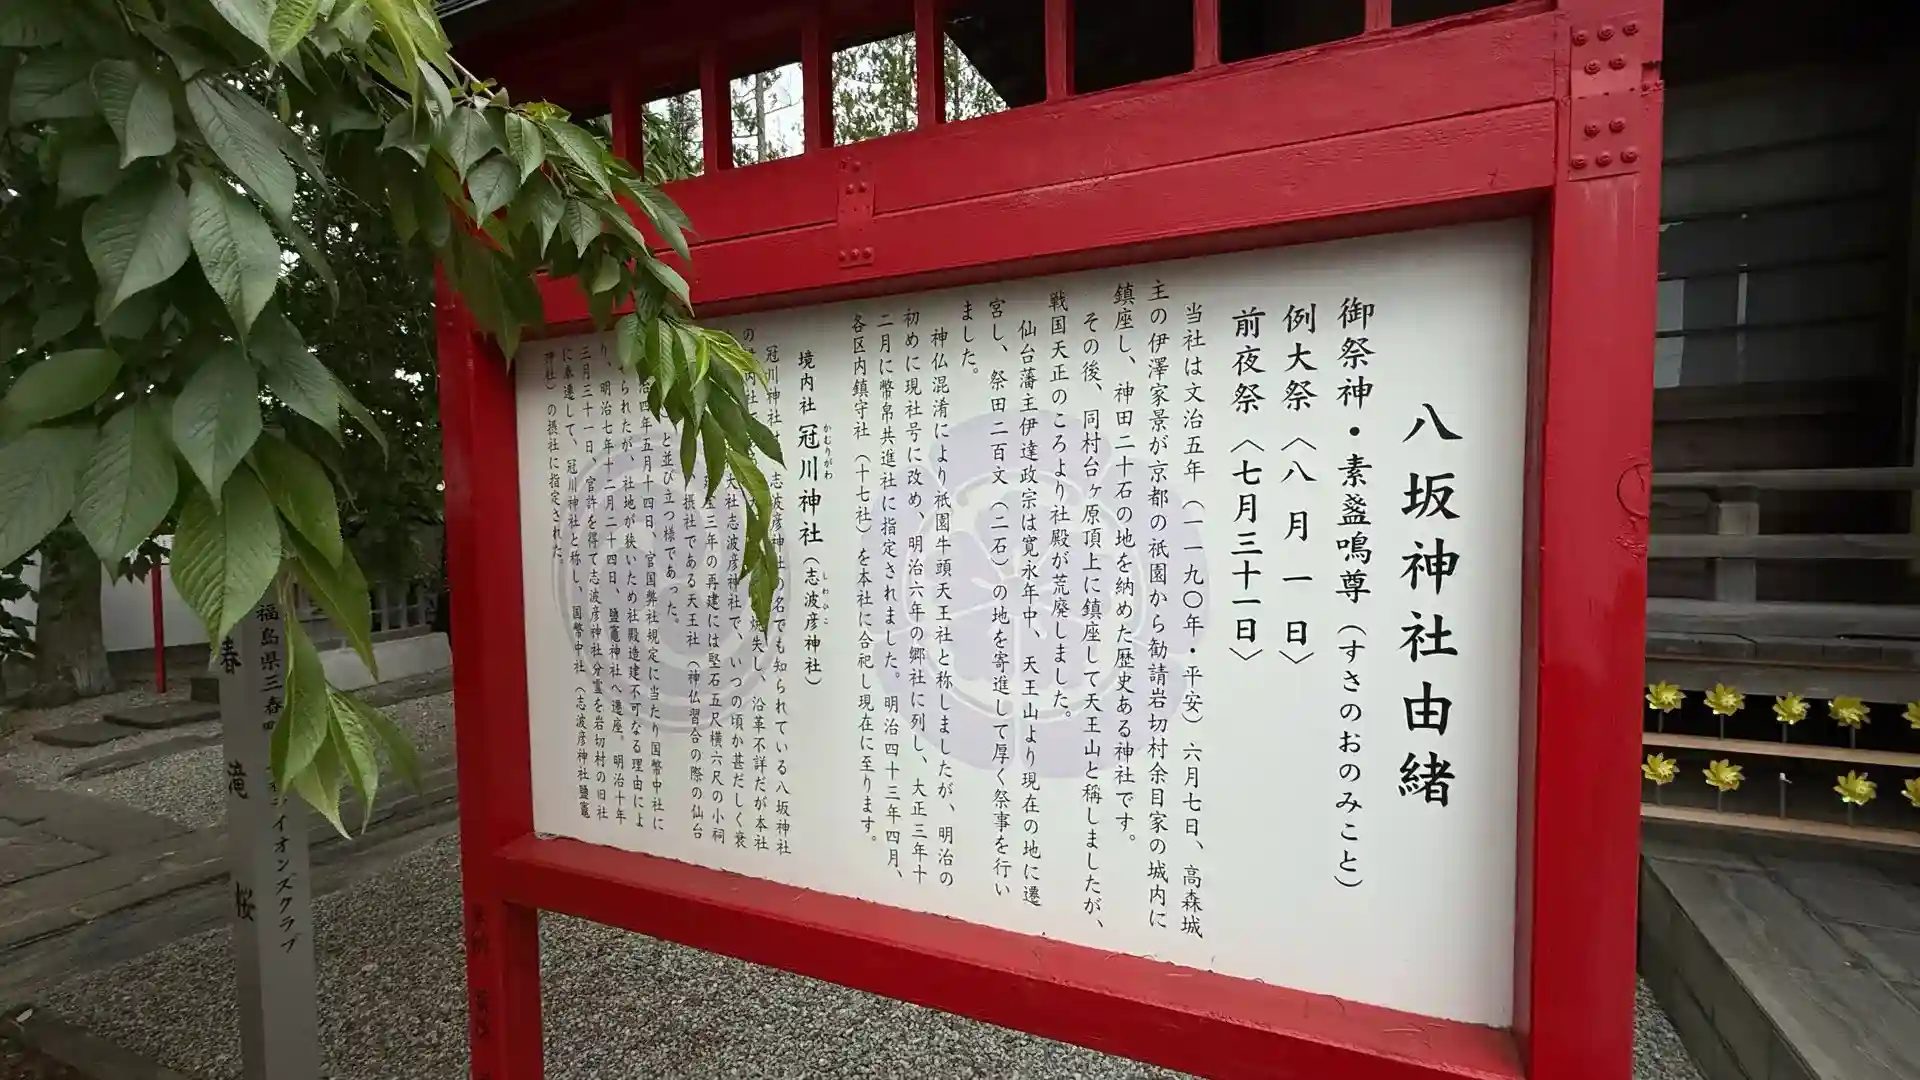 八坂神社由緒
御祭神・素盞鳴尊（すさのおのみこと）
例大祭〈八月一日〉
前夜祭〈七月三十一日〉
当社は文治五年（一一九〇年・平安）六月七日、高森城
主の伊澤家景が京都の祇園から勧請岩切村余目家の城内に
鎮座し、神田二十石の地を納めた歴史ある神社です。
その後、同村台ヶ原頂上に鎮座して天王山と称しましたが、
戦国天正のころより社殿が荒廃しました。
仙台藩主伊達政宗は寛永年中、天王山より現在の地に遷
宮し、祭田二百文（二石）の地を寄進して厚く祭事を行い
ました。
神仏混淆により祇園牛頭天王社と称しましたが、明治の
初めに現社号に改め、明治六年の郷社に列し、大正三年十
二月に幣帛共進社に指定されました。明治四十三年四月、
各区内鎮守社（十七社）を本社に合祀し現在に至ります。
境内社 冠川神社（志波彦神社）
かむりがわ
しわひこ
冠川神社は、志波彦神社の名でも知られている八坂神社
の境内社
焼失し、沿革不詳だが本社
大社志波彦神社で、いつの頃か甚だしく衰
三年の再建には堅石五尺横六尺の小祠
摂社である天王社（神仏習合の際の仙台
と並び立つ様であった。
治四年五月十四日、官国弊社規定に当たり国幣中社に
られたが、社地が狭いため社殿造建不可なる理由によ
り、明治七年十二月二十四日、鹽竈神社へ遷座。明治十年
三月三十一日、官許を得て志波彦神社分霊を岩切村の旧社
に奉遷して、冠川神社と称し、国幣中社（志波彦神社鹽竈
神社）の摂社に指定された。
福島県三春町
イオンズクラブ
春
滝
桜